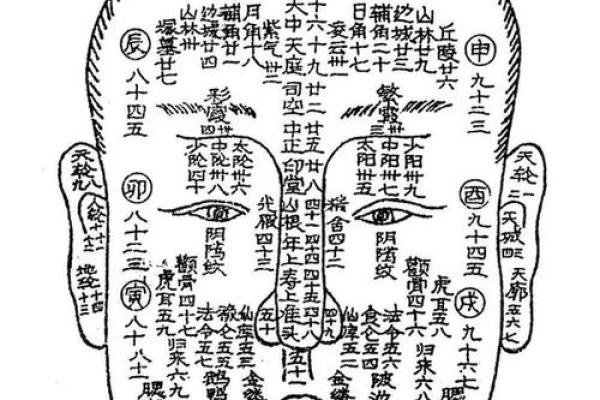 山林廿九
边城廿三
辅角二十
日角十七
凌云卅一
丘陵廿六
申
九十二三
十六十九廿二廿五廿八
大中天庭司空中正印堂山根年上寿上准头
四十一四十四四十五四十八
紫气卅二
月角十八
辅角廿一
边城廿四
山林卅
塚墓廿七
辰
八十四五
繁霞卅三
彩霞卅四
少阳卅九
中阳卅七
太阳卅五
太阴卅六
中阴卅八
少阴四十
精舍四十二
光殿四十三
阴骘纹
阴骘纹
天轮一二
天城三四
天廓五六七
天轮八九
人轮十十一十二
地轮十四十三
酉
九十四五
卯
八十二三
戌
九十六七
寅
八十八十一
颧骨四十六
颧骨四十七
虎耳五八
虎耳五九
归来六八
归来六九
法令五六
食仓五四
仙库五二
四十九
五十
仙库五三
禄仓五五
法令五七
五十一
金缕
金缕
陂池
鹅鸭
腮
腮